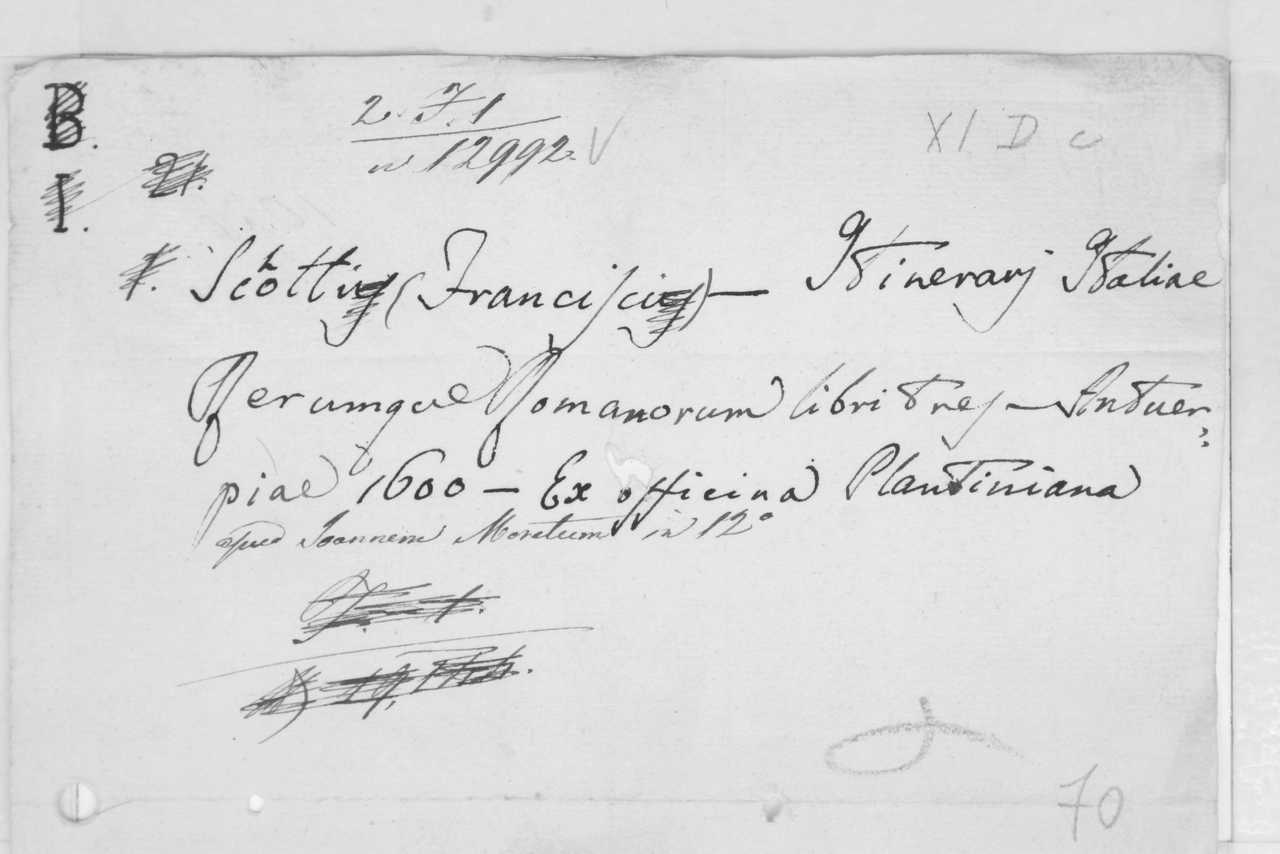 B.
2. F. 1
n 12992. V
XI D c
I.
Schotti (Francisci) — Itinerarj Italiae
Rerumque Romanorum libri tres — Antuer,,
piae 1600 — Ex officina Plantiniana
apud Joannem Moretum in 12°
70